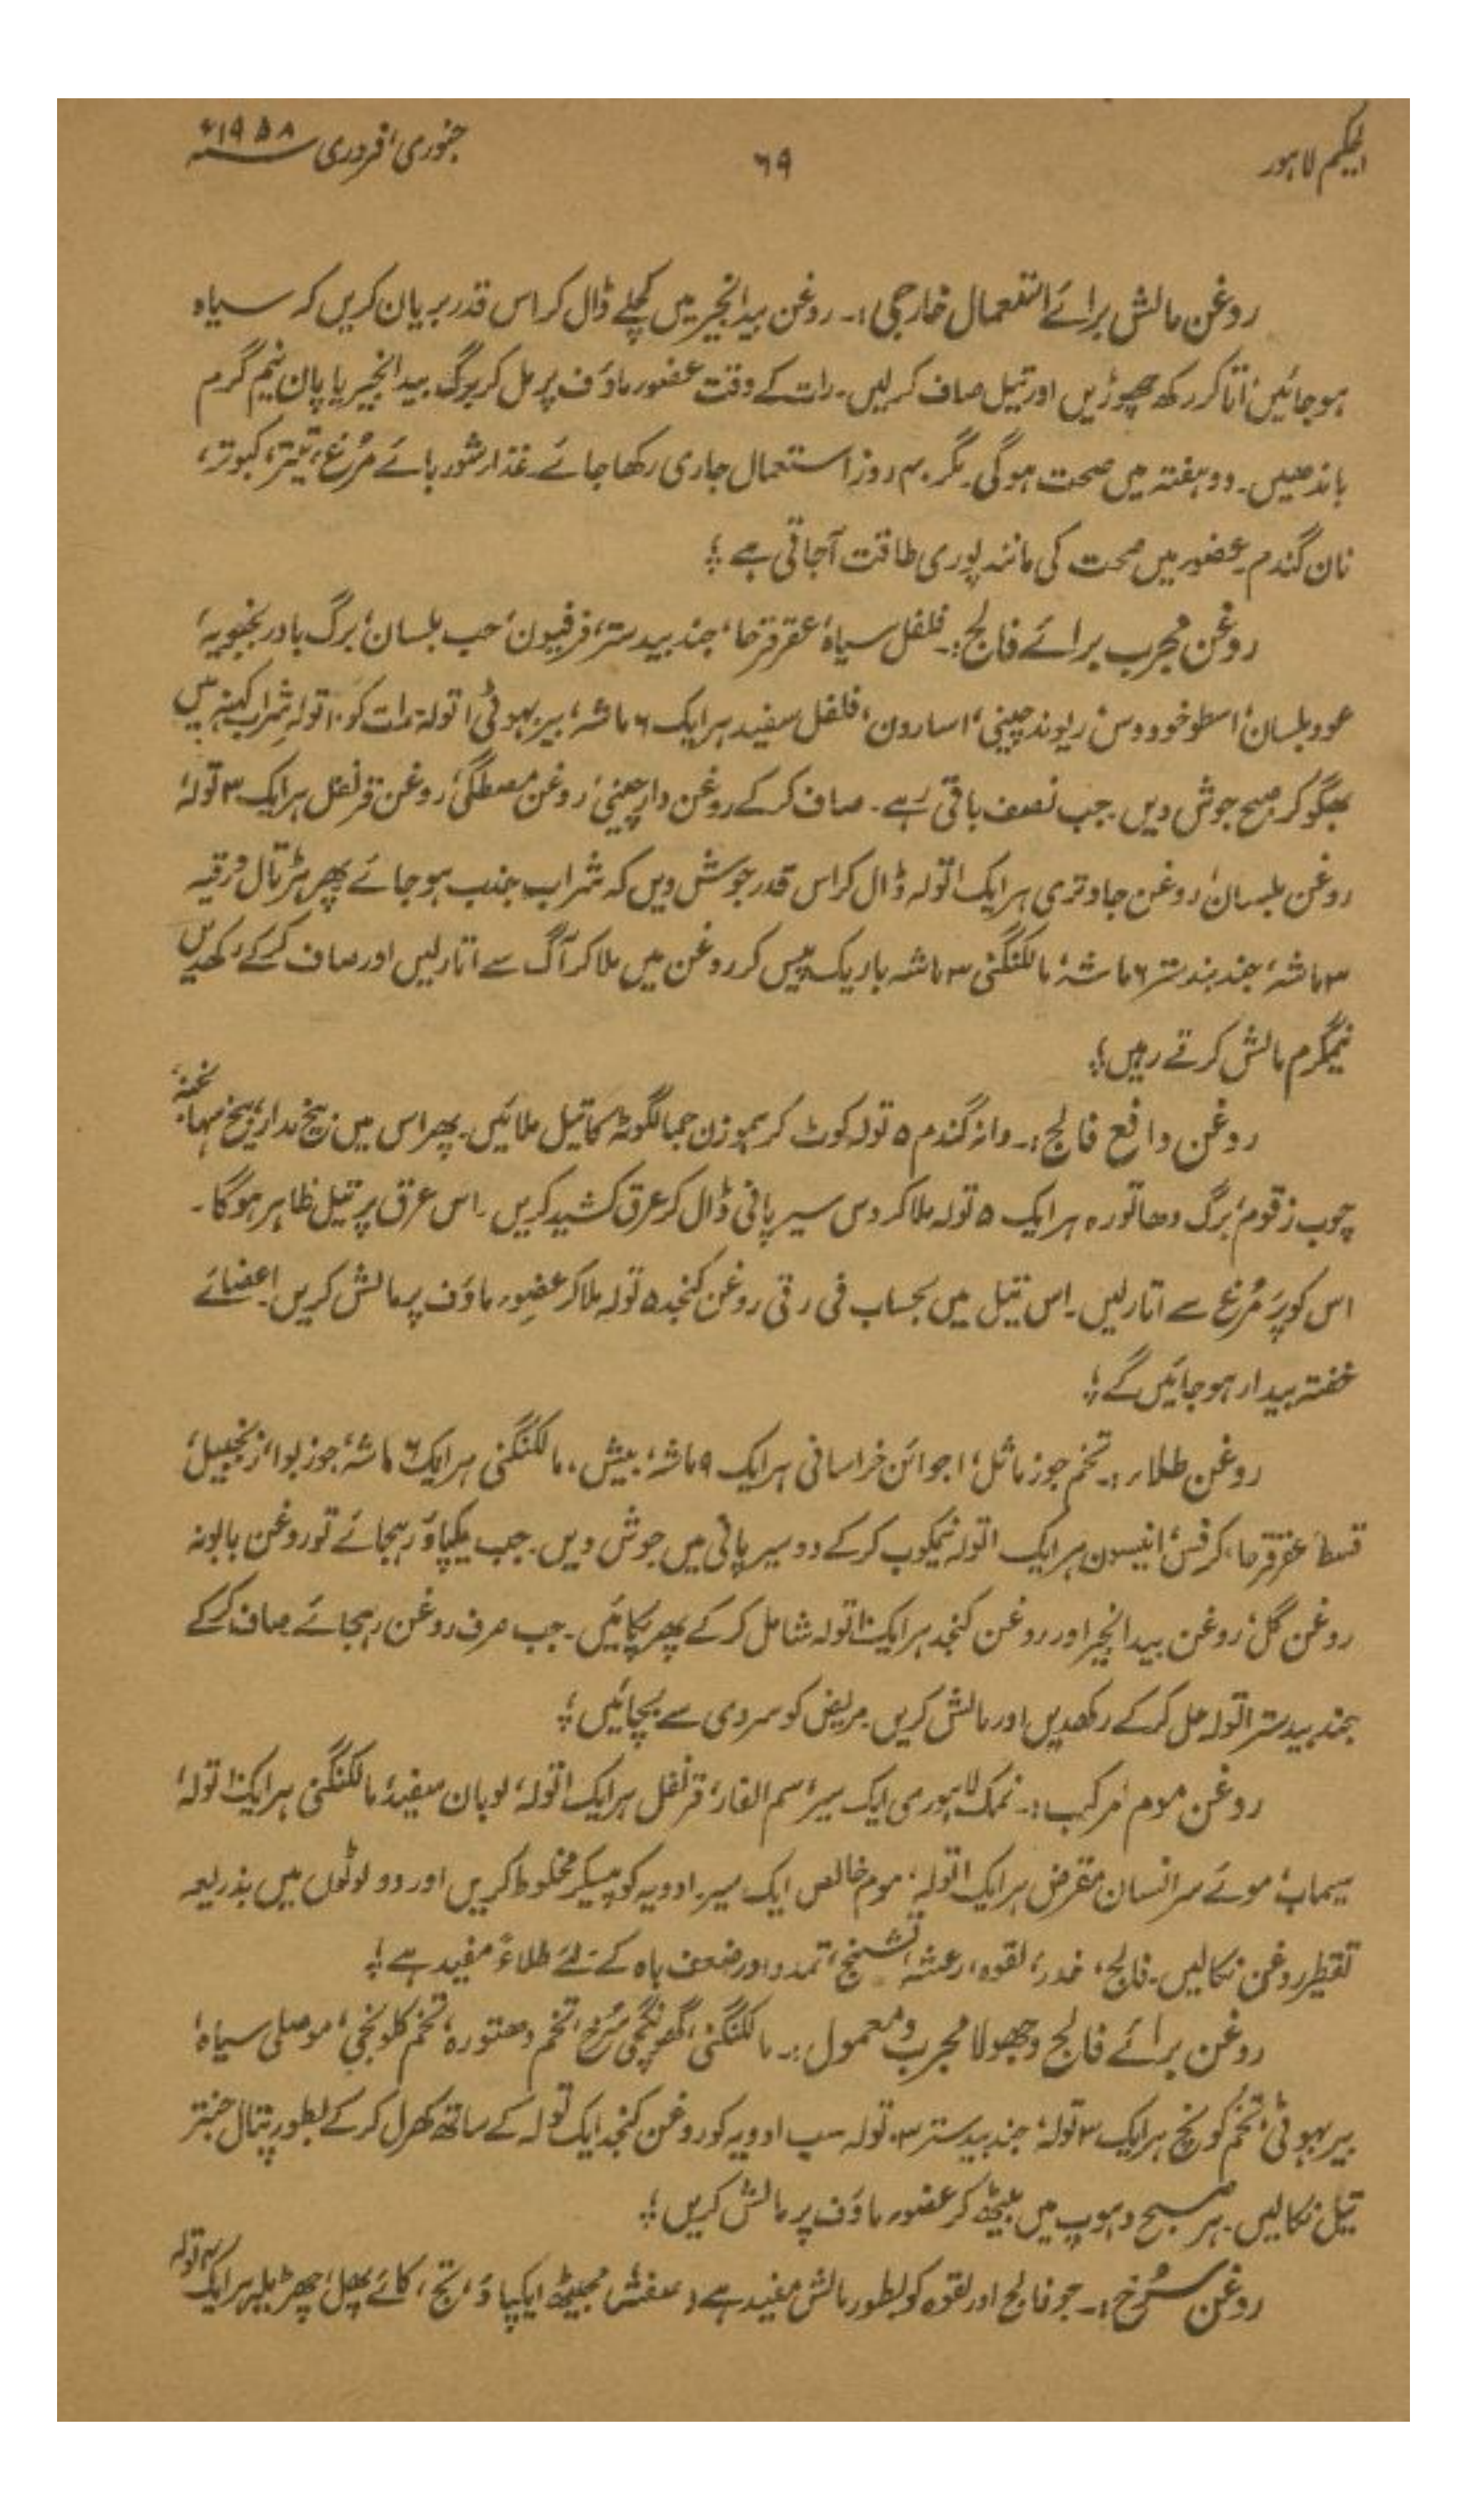 الحکیم لاہور ۶۹ جنوری، فروری ۱۹۵۸ء
روغن مالش برائے استعمال خارجی:۔ روغن بیدانجیر میں کچلے ڈال کر اس قدر بریان کریں کہ سیاہ
ہو جائیں، اتار کر رکھ چھوڑیں اور تیل صاف کر لیں۔ رات کے وقت عضو ماؤف پر مل کر برگ بیدانجیر یا پان نیم گرم
باندھیں۔ دو ہفتہ میں صحت ہوگی۔ مگر ۴۰ روز استعمال جاری رکھا جائے۔ غذا شوربائے مُرغ، تیتر، کبوتر،
نان گندم۔ عضو میں صحت کی مانند پوری طاقت آجاتی ہے ؛
روغن مجرب برائے فالج:۔ فلفل سیاہ، عقرقرحا، جندبیدستر، فرفیون، حب بلسان، برگ بادرنجبویہ،
عود بلسان، اسطوخودوس، ریوندچینی، اسارون، فلفل سفید ہر ایک ۶ ماشہ، بیربہوٹی ۱ تولہ، رات کو ۱۰ تولہ شراب کہنہ میں
بھگو کر صبح جوش دیں۔ جب نصف باقی رہے۔ صاف کر کے روغن دارچینی، روغن مصطگی، روغن قرنفل ہر ایک ۳ تولہ،
روغن بلسان، روغن جاوتری ہر ایک ۱ تولہ ڈال کر اس قدر جوش دیں کہ شراب جذب ہو جائے پھر ہڑتال ورقیہ
۳ ماشہ، جندبیدستر ۶ ماشہ، مالکنگنی ۳ ماشہ باریک پیس کر روغن میں ملا کر آگ سے اتار لیں اور صاف کر کے رکھدیں
نیمگرم مالش کرتے رہیں؛
روغن دافع فالج:۔ دانہ گندم ۵ تولہ کوٹ کر ہموزن جمالگوٹہ کا تیل ملائیں۔ پھر اس میں بیخ مدار، بیخ سہانجنہ،
چوب زقوم، برگ دھاتورہ ہر ایک ۵ تولہ ملا کر دس سیر پانی ڈال کر عرق کشید کریں۔ اس عرق پر تیل ظاہر ہوگا۔
اس کو پَر مُرغ سے اتار لیں۔ اس تیل میں بحساب فی رتی روغن کنجد ۵ تولہ ملا کر عضو ماؤف پر مالش کریں۔ اعضائے
خفتہ بیدار ہو جائیں گے؛
روغن طلاء:۔ تخم جوز ماثل، اجوائن خراسانی ہر ایک ۹ ماشہ، بیش، مالکنگنی ہر ایک ۶ ماشہ، جوزبوا، زنجبیل،
قسط، عقرقرحا، کرفس، انیسون ہر ایک ۱ تولہ نیمکوب کر کے دو سیر پانی میں جوش دیں۔ جب یکپاؤ رہجائے تو روغن بابونہ
روغن گل، روغن بیدانجیر اور روغن کنجد ہر ایک ۱۰ تولہ شامل کر کے پھر پکائیں۔ جب صرف روغن رہجائے صاف کر کے
جندبیدستر ۱ تولہ حل کر کے رکھدیں اور مالش کریں۔ مریض کو سردی سے بچائیں؛
روغن موم مُرکب:۔ نمک لاہوری ایک سیر، سم الفار، قرنفل ہر ایک ۱ تولہ، لوبان سفید، مالکنگنی ہر ایک ۱۰ تولہ،
سیماب، موئے سر انسان مقرض ہر ایک ۱ تولہ، موم خالص ایک سیر۔ ادویہ کو پیسکر مخلوط کریں اور دو لوٹوں میں بذریعہ
تقطیر روغن نکالیں۔ فالج، خدر، لقوہ، رعشہ، تشنج، تمدد اور ضعف باہ کے لئے طلاءً مفید ہے؛
روغن برائے فالج و جھولا مجرب و معمول:۔ مالکنگنی، گھونگچی سُرخ، تخم دھتورہ، تخم کلونجی، موصلی سیاہ،
بیربہوٹی، تخم کونچ ہر ایک ۲ تولہ، جندبیدستر ۳ تولہ سب ادویہ کو روغن کنجد ایک تولہ کے ساتھ کھرل کر کے بطور پتال جنتر
تیل نکالیں۔ ہر صبح دہوپ میں بیٹھ کر عضو ماؤف پر مالش کریں؛
روغن سُرخ:۔ جو فالج اور لقوہ کو بطور مالش مفید ہے، مجیٹھ ایکپاؤ، تج، کائے پھل، چھڑیلہ ہر ایک تولہ